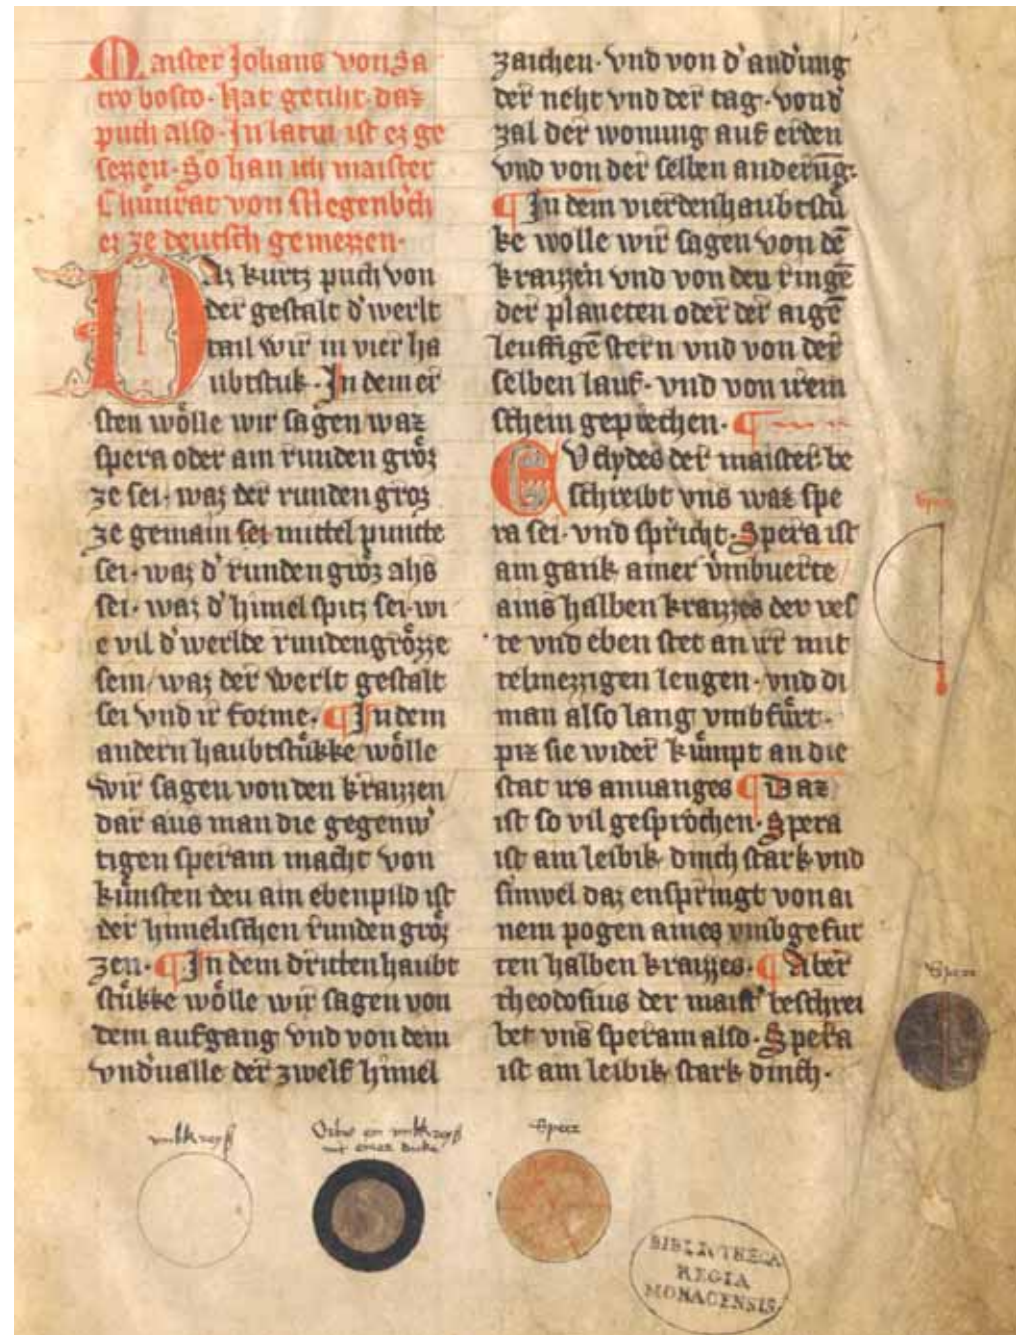 Maister Johans von Sa
cro bosco· hat getiht· daz
puch also· In latin ist ez ge
sezzen· So han ich maister
Chunrat von Megenb'ch
ez ze deutsch gemezzen·
Daz kurtz puch von
der gestalt d' werlt
tail wir in vier ha
ubtstuk· In dem er
sten wölle wir sagen waz
spera oder ain runden gröz
ze sei· waz der runden groz
ze gemain sei mittel puncte
sei· waz d' runden gröz ahs
sei· waz d' himel spitz sei· wi
e vil d' werlde runden grözze
sein/ waz der werlt gestalt
sei vnd ir forme· ¶ In dem
andern haubtstükke wölle
wir sagen von den kraizzen
dar aus man die gegenw'
tigen speram macht von
künsten deu ain ebenpild ist
der himelischen runden gröz
zen· ¶ In dem dritten haubt
stükke wölle wir sagen von
dem aufgang vnd von dem
vnd'ualle der zwelf himel
zaichen· vnd von d' and'ung
der neht vnd der tag· von d'
zal der wonung auf erden
vnd von der selben anderūg·
¶ In dem vierden haubtstü
ke wolle wir sagen von dē
kraizzen vnd von den ringē
der planeten oder der aigē
leuffigē stern vnd von der
selben lauf· vnd von irem
schein geprechen· ¶
EVclydes der maister be
schreibt vns waz spe
ra sei· vnd spricht· Spera ist
ain gank ainer vmbuerte
ains halben kraizzes der ves
te vnd eben stet an ir mit
telmezzigen lengen· vnd di
man also lang vmbfürt·
piz sie wider kümpt an die
stat irs anuanges ¶ Daz
ist so vil gesprochen· Spera
ist ain leibik dinch stark vnd
sinwel daz enspringt von ai
nem pogen aines vmbgefur
ten halben kraizzes· ¶ Aber
theodosius der maist' beschrei
bet vns speram also· Spera
ist ain leibik stark dinch·
Spera
Spera
vmbkreyß
Orbis ein vmbkreyß
mit einer dicke
Spera
BIBLIOTHECA
REGIA
MONACENSIS